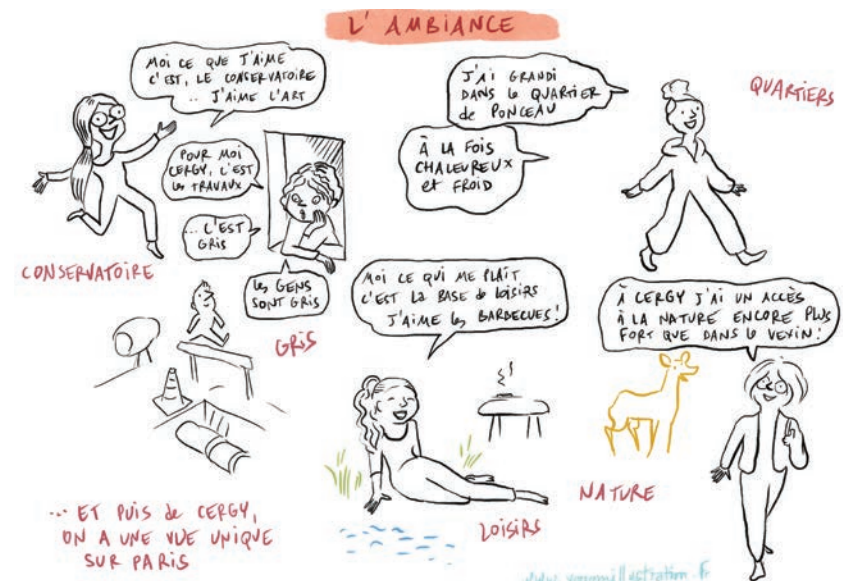 L'AMBIANCE
MOI CE QUE J'AIME
C'EST, LE CONSERVATOIRE
.. J'AIME L'ART
POUR MOI
CERGY, C'EST
les TRAVAUX
... C'EST
GRIS
les GENS
SONT GRIS
CONSERVATOIRE
GRIS
J'AI GRANDI
DANS le QUARTIER
de PONCEAU
À LA FOIS
CHALEUREUX
et FROID
QUARTIERS
MOI CE QUI ME PLAÎT
C'EST LA BASE de LOISIRS
J'AIME les BARBECUES!
LOISIRS
À CERGY J'AI UN ACCÈS
À LA NATURE ENCORE PLUS
FORT QUE DANS le VEXIN!
NATURE
... ET PUIS de CERGY,
ON A UNE VUE UNIQUE
SUR PARIS